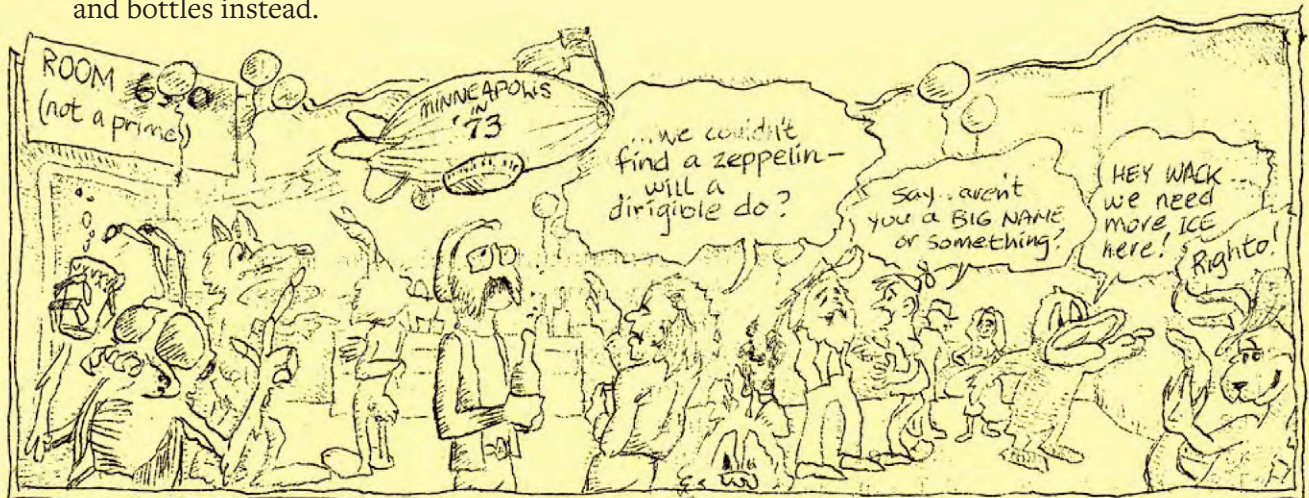 and bottles instead.
ROOM 6
(not a prime)
MINNEAPOLIS
IN
'73
...we couldn't
find a zeppelin—
will a
dirigible do?
Say..aren't
you a BIG NAME
or something?
HEY WACK...
we need
more ICE
here!
Righto!